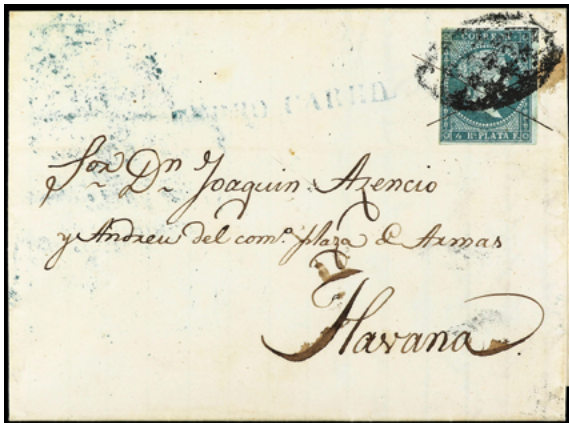 CORREOS
½ Rl. PLATA F.
Sor. Dn. Joaquin Azencio
y Andreu del como. plaza de Armas
Havana.